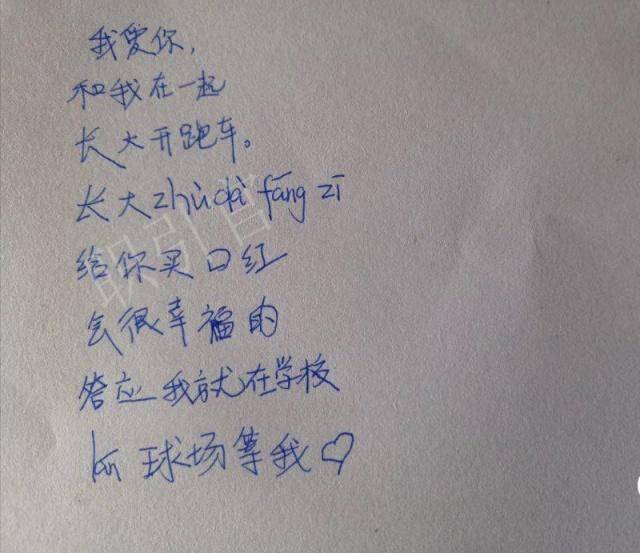 我爱你，
和我在一起
长大开跑车。
长大zhù dà fáng zī
给你买口红
会很幸福的
答应我就在学校
lán球场等我♡
职引官